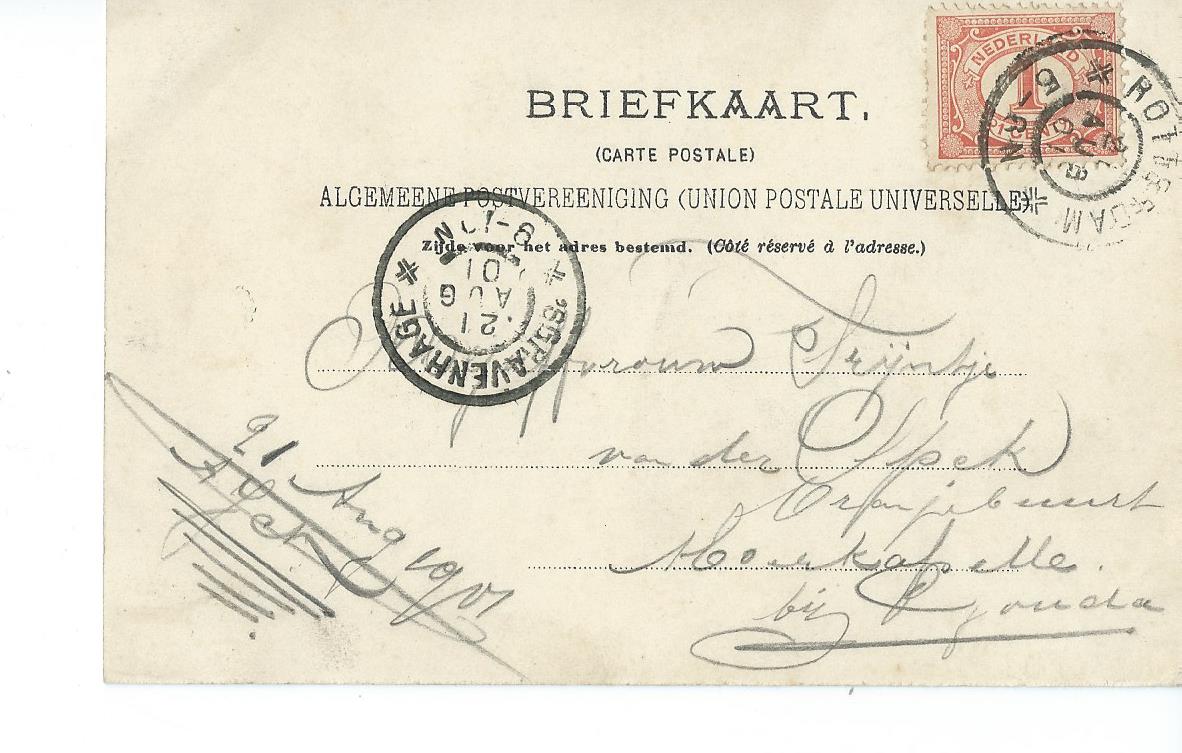 BRIEFKAART.
(CARTE POSTALE)
ALGEMEENE POSTVEREENIGING (UNION POSTALE UNIVERSELLE)
Zijde voor het adres bestemd. (Côté réservé à l'adresse.)
NEDERLAND
1
1 CENT
ROTTERDAM
5-6N
21
AUG
01
'SGRAVENHAGE
21
AUG
01
Juffvrouw Trijntje
van der Spek
Oranjebuurt
Moerkapelle.
bij Gouda
21 Aug 1901